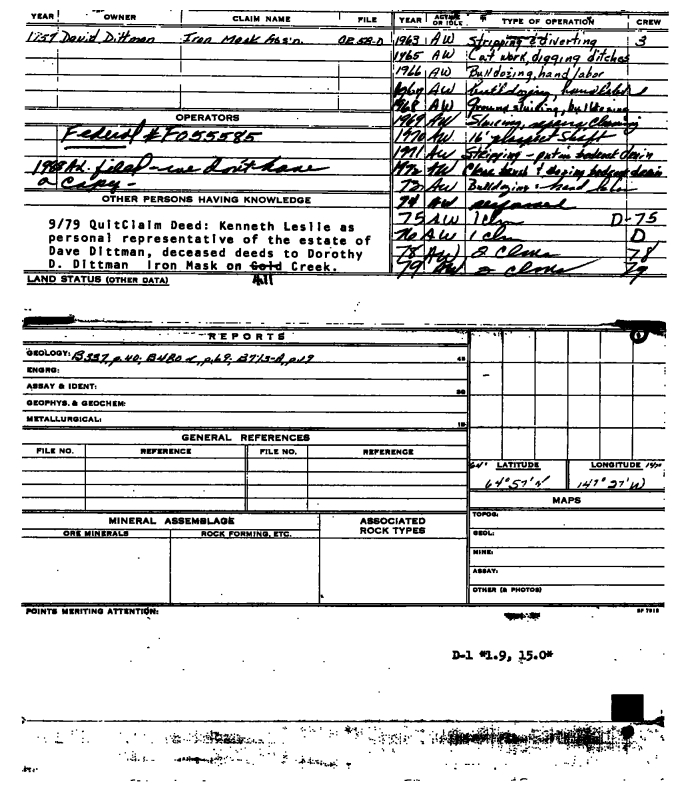 YEAR OWNER CLAIM NAME FILE YEAR ACTIVE OR IDLE TYPE OF OPERATION CREW
1957 David Dittman Iron Mask Ass'n. 1963 AW Stripping & diverting 3
1965 AW Cat work, digging ditches
1966 AW Bulldozing, hand labor
AW bulldozing hand labor
1968 AW Ground sluicing, bulldozing
OPERATORS
1969 AW Sluicing, cleaning
Federal # F055585
1970 AW 16' prospect shaft
1971 AW Stripping - put in bedrock drain
1968 Ad. filed - we don't have
1972 AW Clean & bedrock drain
a copy -
73 AW Bulldozing - hand labor
OTHER PERSONS HAVING KNOWLEDGE
74 AW
75 AW 1 clm D-75
9/79 QuitClaim Deed: Kenneth Leslie as
personal representative of the estate of
76 AW 1 clm D
Dave Dittman, deceased deeds to Dorothy
78 AW 2 clms 78
D. Dittman Iron Mask on Gold Creek.
79 AW 2 clms 79
LAND STATUS (OTHER DATA) All
REPORTS
GEOLOGY: B337, p.40; B480 p.69; B713-A, p.19
ENGRG:
ASSAY & IDENT:
GEOPHYS. & GEOCHEM:
METALLURGICAL:
GENERAL REFERENCES
FILE NO. REFERENCE FILE NO. REFERENCE
64° LATITUDE LONGITUDE
64°57'N 147°27'W
MAPS
MINERAL ASSEMBLAGE ASSOCIATED ROCK TYPES
TOPOG:
ORE MINERALS ROCK FORMING, ETC.
GEOL:
MINE:
ASSAY:
OTHER (& PHOTOS)
POINTS MERITING ATTENTION:
D-1 *1.9, 15.0*